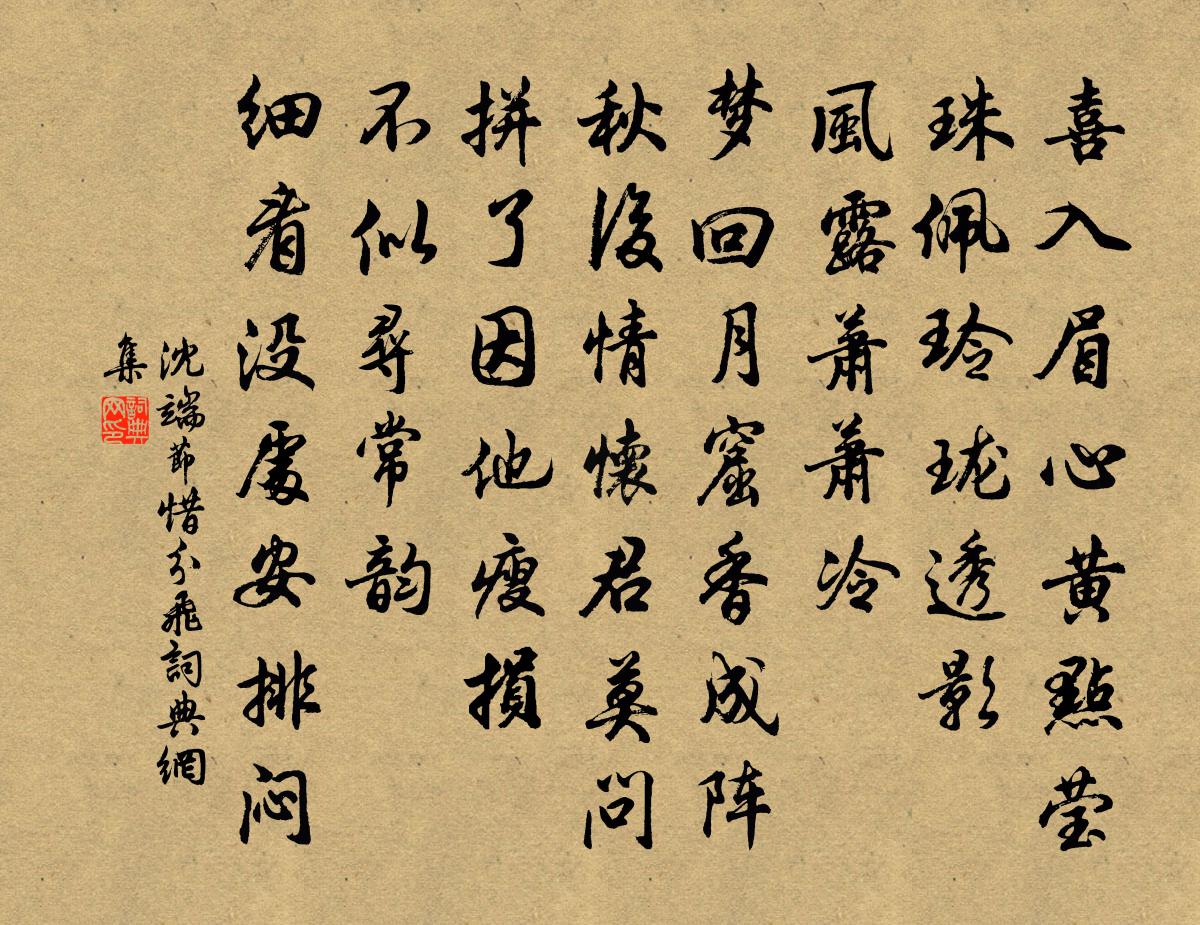 喜入眉心黄點莹
珠佩玲珑透影
風露萧萧冷
梦回月窟香成阵
秋後情懷君莫问
拼了因他瘦損
不似尋常韵
细看没處安排闷
沈端節惜分飛詞典網
集
詞典网印